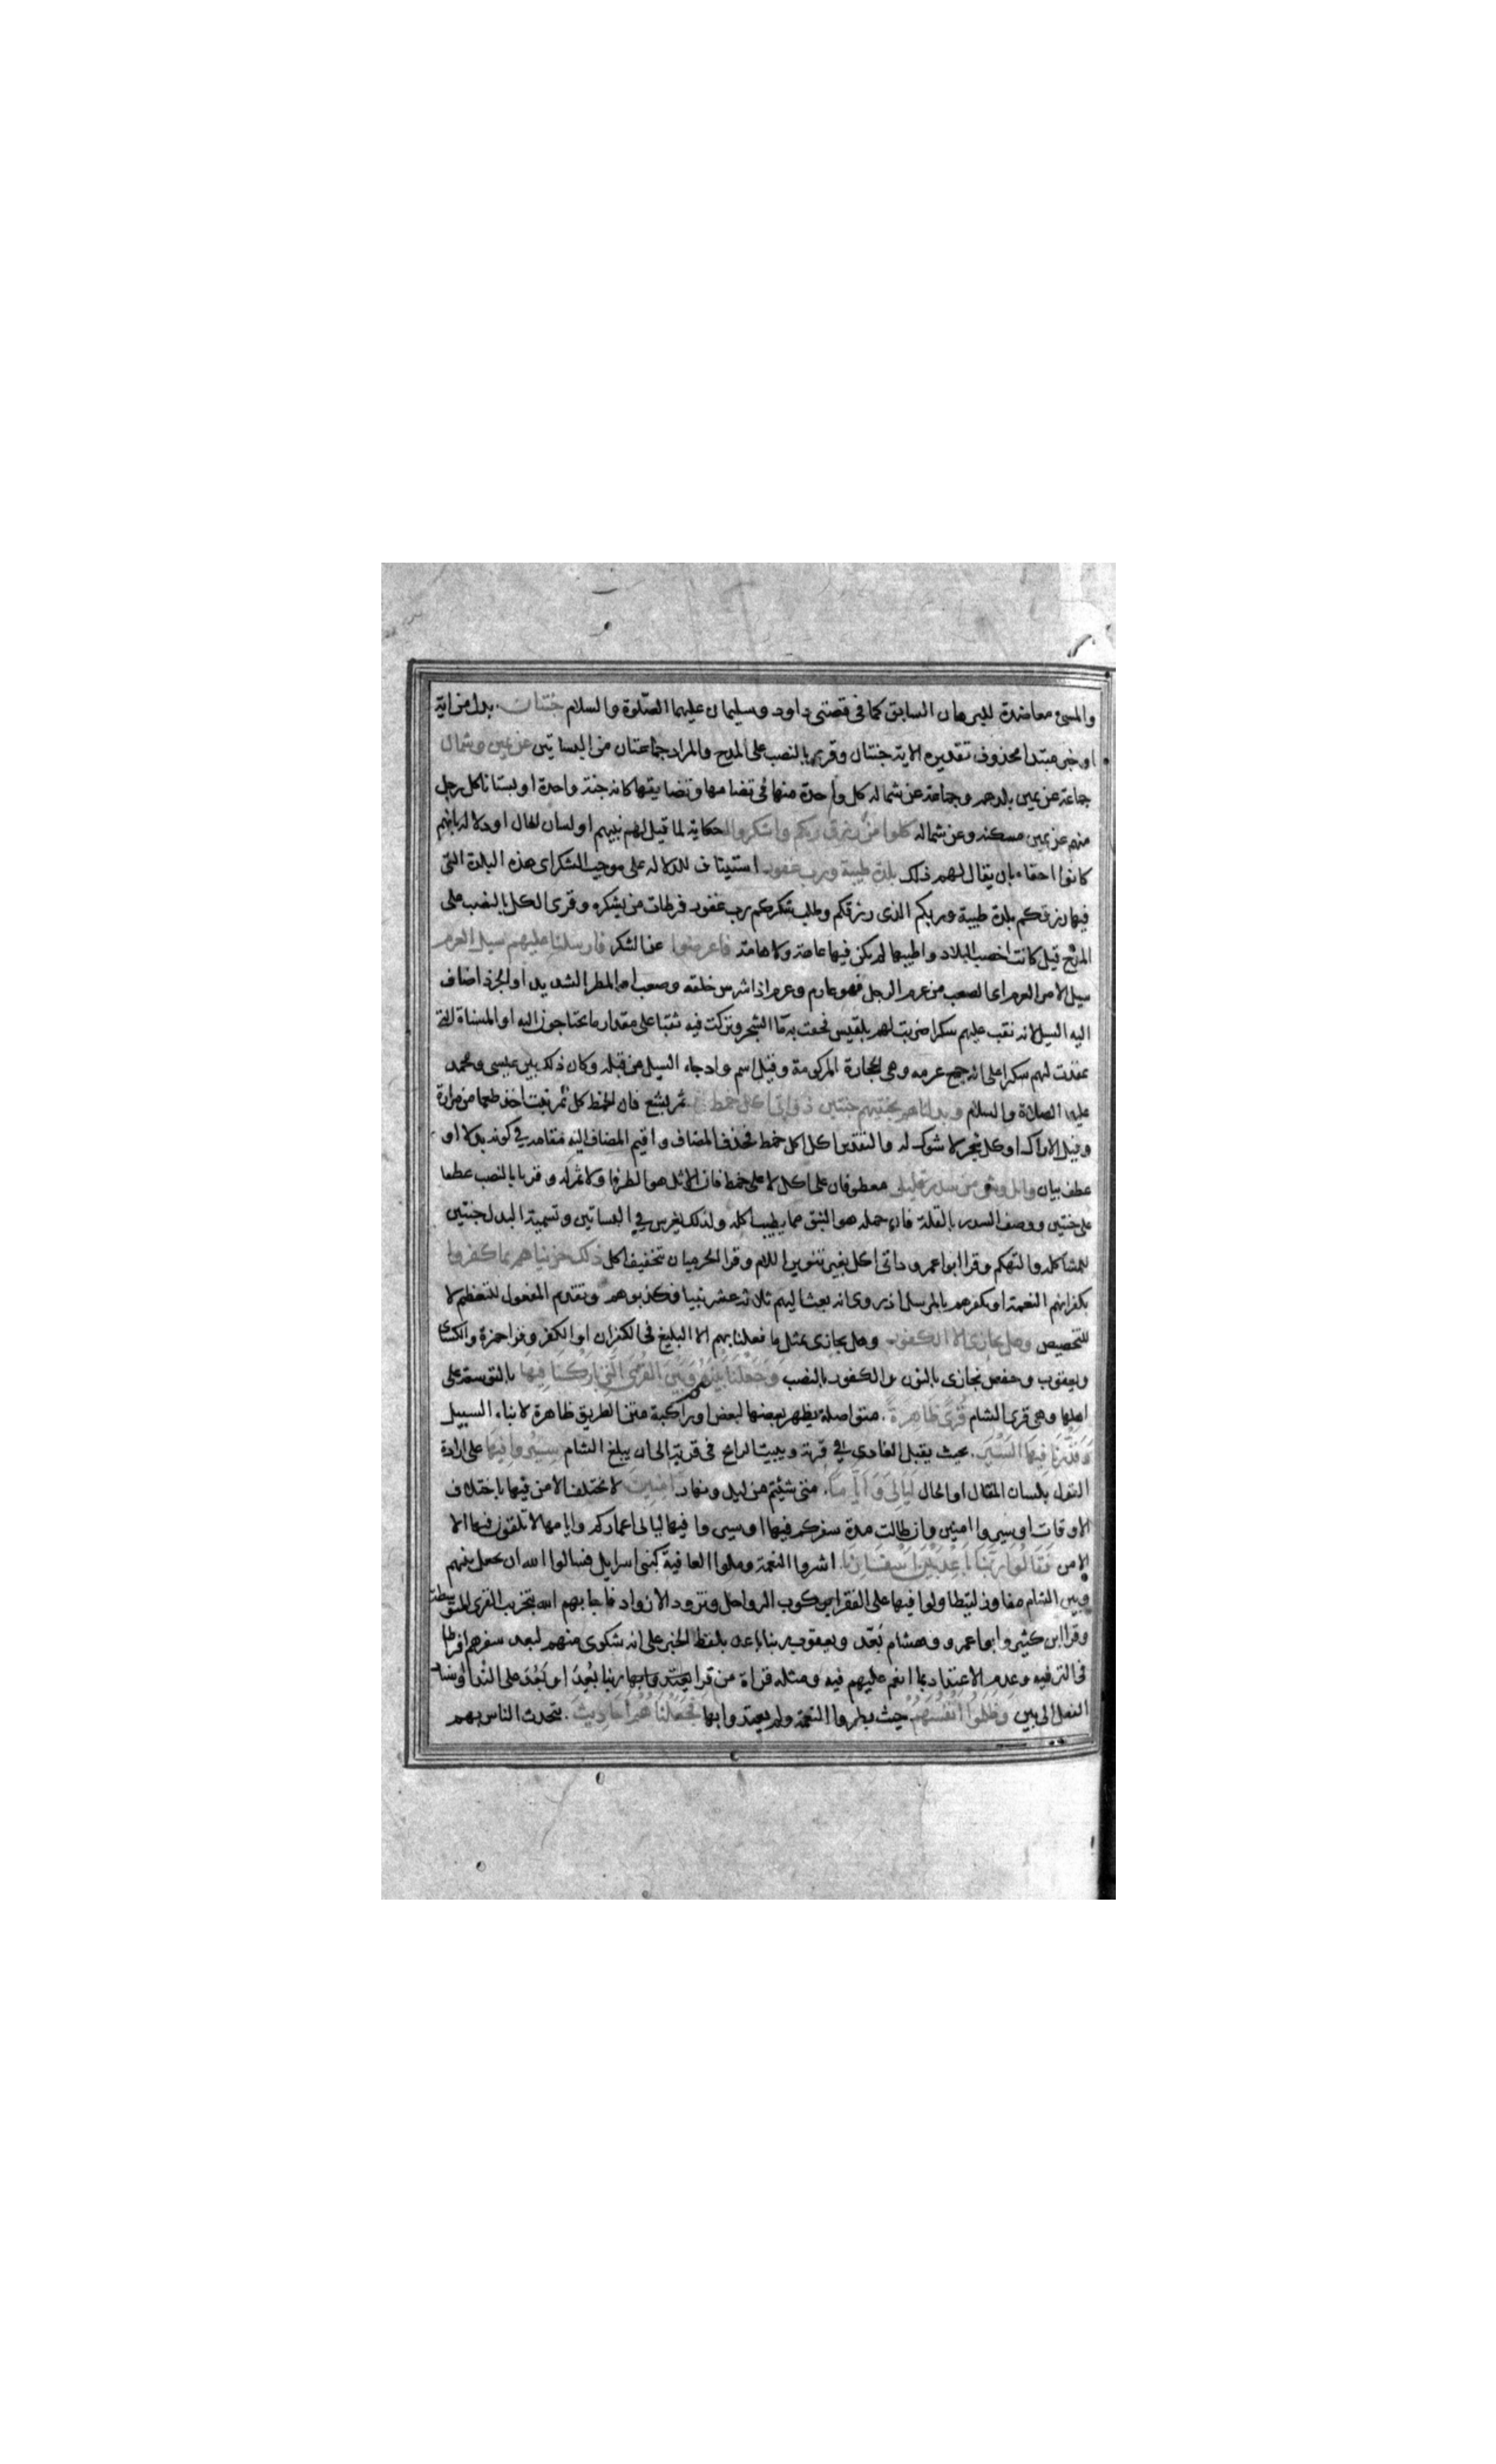 والمسئ معاضدة للبرهان السابق كما في قصتى داود وسليمان عليهما الصلوة والسلام جنتان بدل من اية
او خبر مبتدا محذوف تقديره الاية جنتان وقرى بالنصب على المدح والمراد جماعتان من البساتين عن يمين وشمال
جماعة عن يمين بلدهم وجماعة عن شماله كل واحدة منها فى تضامها وتضايقها كانه جنة واحدة او بستانا كل رجل
منهم عن يمين مسكنه وعن شماله كلوا من رزق ربكم واشكروا له حكاية لما قيل لهم نبيهم او لسان الحال او دلالة بانهم
كانوا احقاء بان يقال لهم ذلك بلدة طيبة ورب غفور استيناف للدلالة على موجب الشكر اى هذه البلدة التى
فيها رزقكم بلدة طيبة وربكم الذى رزقكم وطلب شكركم رب غفور فرطات من يشكره وقرى الكل بالنصب على
المدح قيل كانت اخصب البلاد واطيبها لم يكن فيها عاهة ولا هامة فاعرضوا عن الشكر فارسلنا عليهم سيل العرم
سيل الامر العرم اى الصعب من عرم الرجل فهو عارم وعرم اذا شرس خلقه وصعب او المطر الشديد او الجرذ اضاف
اليه السيل لانه نقب عليهم سكرا ضربت لهم بلقيس فحقنت به ما الشجر وتركت فيه ثقبا على مقدار ما يحتاجون اليه او المسناة التى
عقدت لهم سكرا على انه جمع عرمه وهى الحجارة المركومة وقيل اسم واد جاء السيل من قبله وكان ذلك بين عيسى ومحمد
عليها الصلاة والسلام وبدلناهم بجنتيهم جنتين ذواتى اكل خمط ثمر بشع فان الخمط كل نبت اخذ طعما من مرارة
وقيل الاراك او كل شجر لا شوك له والتقدير اكل اكل خمط فحذف المضاف واقيم المضاف اليه مقامه في كونه بدلا او
عطف بيان واثل وشئ من سدر قليل معطوفان على اكل لا على خمط فان الاثل هو الطرفا ولا ثمر له وقريا بالنصب عطفا
على جنتين ووصف السدر بالقلة فان حمله هو النبق مما يطيب اكله ولذلك يغرس في البساتين وتسمية البدل جنتين
للمشاكلة والتهكم وقرا ابو عمرو ذواتى اكل بغير تنوين اللام وقرا الحرميان بتخفيف اكل ذلك جزيناهم بما كفروا
بكفرانهم النعمة او بكفرهم بالرسل اذ روى انه بعث اليهم ثلاثة عشر نبيا فكذبوهم وتقديم المفعول للتعظيم لا
للتخصيص وهل يجازى الا الكفور وهل يجازى بمثل ما فعلنا بهم الا البليغ فى الكفران او الكفر وقرا حمزة والكسائى
ويعقوب وحفص نجازى بالنون والكفور بالنصب وجعلنا بينهم وبين القرى التى باركنا فيها بالتوسعة على
اهلها وهى قرى الشام قرى ظاهرة متواصلة يظهر بعضها لبعض او راكبة متن الطريق ظاهرة لابناء السبيل
وقدرنا فيها السير بحيث يقيل الغادى في قرية ويبيت الرائح فى قرية الى ان يبلغ الشام سيروا فيها على ارادة
القول بلسان المقال او الحال ليالى واياما متى شئتم من ليل ونهار امنين لا يختلف الامن فيها باختلاف
الاوقات او سيروا امنين وان طالت مدة سفركم فيها او سيروا فيها ليالى اعماركم وايامها لا تلقون فيها الا
الامن فقالوا ربنا باعد بين اسفارنا اشروا النعمة وملوا العافية كبنى اسرايل فسالوا الله ان يجعل بينهم
وبين الشام مفاوز ليتطاولوا فيها على الفقرا بركوب الرواحل وتزود الازواد فاجابهم الله بتخريب القرى المتوسطة
وقرا ابن كثير وابو عمرو وهشام بعد ويعقوب ربنا باعد بلفظ الخبر على انه شكوى منهم لبعد سفرهم افراطا
فى الترفيه وعدم الاعتداد بما انعم عليهم فيه ومثله قراة من قرا ربنا بعد او بعد على الندا واسناد
الفعل الى بين وظلموا انفسهم حيث بطروا النعمة ولم يعتدوا بها فجعلناهم احاديث يتحدث الناس بهم